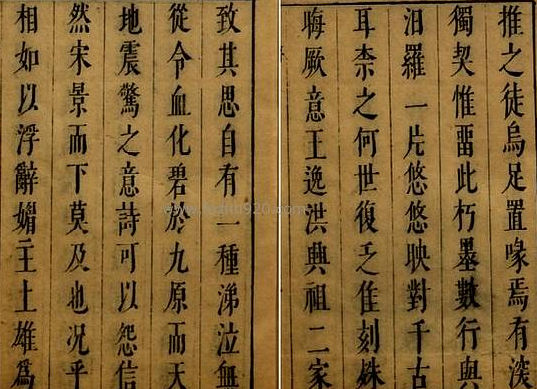 推之徒烏足置喙焉有淡
獨契惟畱此朽墨數行與
汨羅一片悠悠映對千古
耳柰之何世復乏佳刻姝
晦厥意王逸洪興祖二家
致其思自有一種涕泣無
從令血化碧於九原而天
地震驚之意詩可以怨信
然宋景而下莫及也况乎
相如以浮辭媚主土雄爲